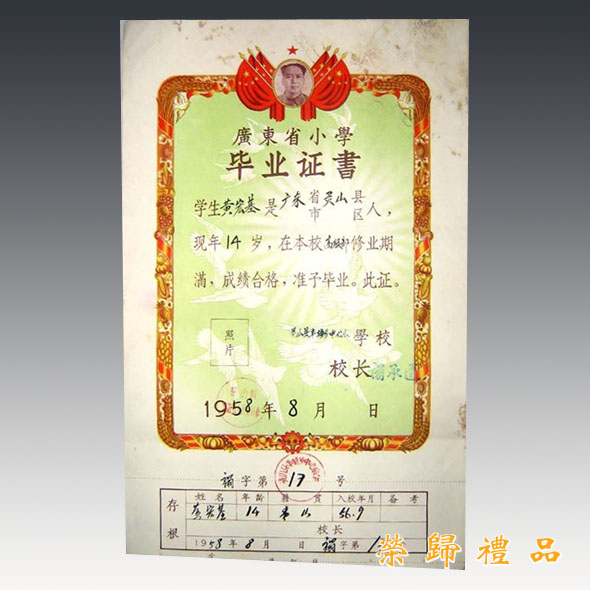 廣東省小學
毕业证書
学生黄宏基是广东省市灵山县区人，
现年14岁，在本校高级部修业期
满，成绩合格，准予毕业。此证。
照片
學校
校长
1958年8月 日
字第13号
存根
姓名 年龄 籍贯 入校年月 备考
黄宏基 14 灵山 56.9
校长
1958年8月 日 字第
榮歸禮品